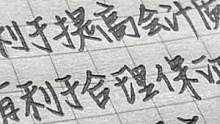 利于提高会计信
有利于合理保证